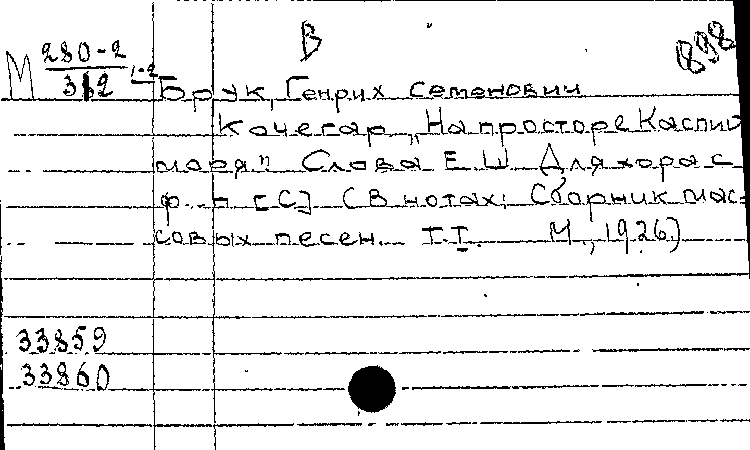 В
898
М 280-2
312 1-2
Брук, Генрих Семенович
Кочегар „На просторе Каспий
моря". Слова Е.Ш. Для хора с
ф.-п [С] (В нотах: Сборник мас-
совых песен. I.I. М., 1926)
33859
33860